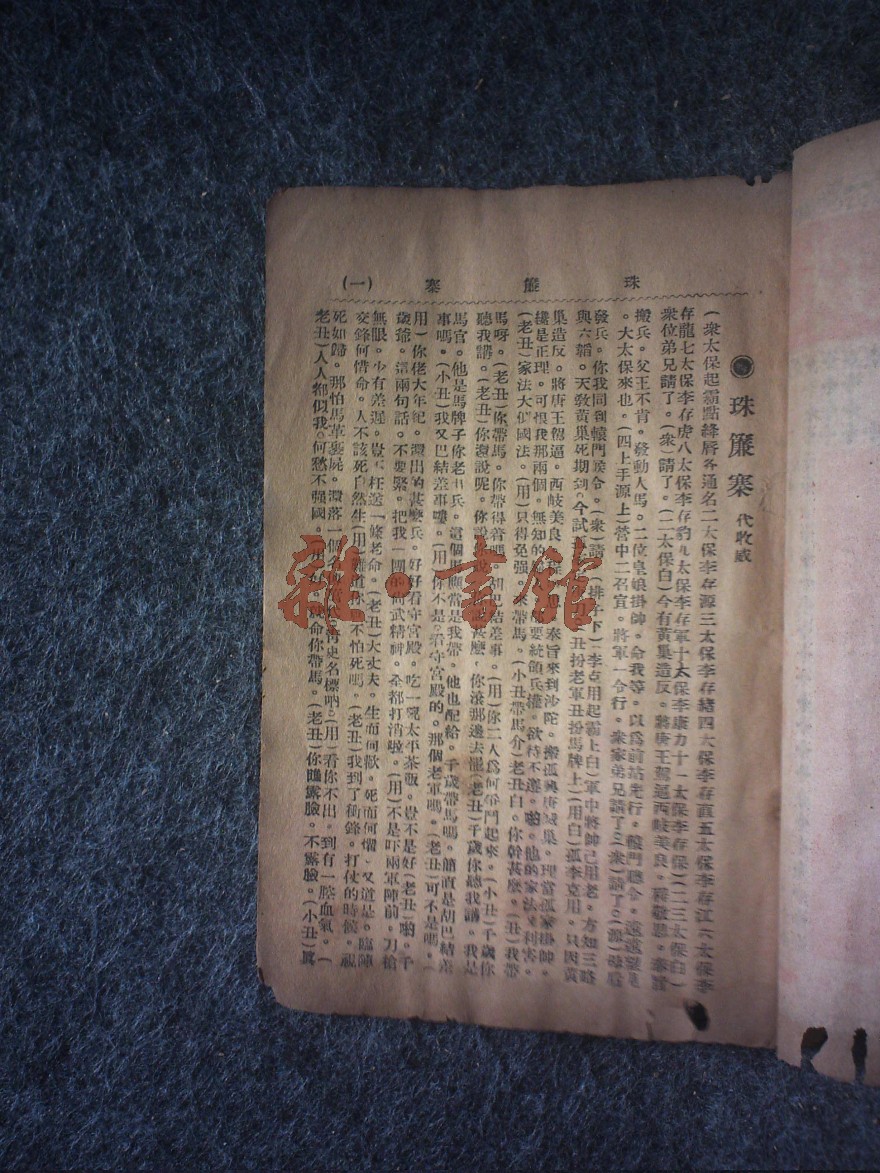 珠簾寨 (一)
珠簾寨 代收威
(衆太保起霸點絳唇各通名二太保李存源三太保李存緒四太保李存直五太保李存江六太保李
存龍七太保李存虎八太保李存豹九太保李存軍十太保李康力十一太保李存保)(二三太保白)
衆位弟兄請了。(衆)請了。(二太保白)今有黃巢造反。將唐王駕逼西岐美良。程敬思。奉旨
搬兵。父王不肯。發動人馬。二位皇娘掛帥。命我等。以爲前站先行。轅門聽令。遠遠望見
。大太保來也。(四上手源上)營中二召宜。將軍一令行。衆家弟兄請了(衆)請了。(源)
發兵。你我同到轅門候令。(衆)請。(排子下)(李克用起霸上白)軍中將帥已用老。方知三略
與六韜。天教黃巢死期到。今試 丑扮老軍丑扮馬牌上)(用白)孤李克用。只因黃
巢造反。將唐王駕逼。西岐美良。程 奉旨來到沙陀。搬孤興唐滅巢。理當孤家掛帥。
纔是正理。可恨我那兩個。無知的 要統領兵權。欲待不遵。喲。他的家法。利害。
(老丑)家法大似國法。(用)只得免强。 來帶馬。(小丑帶馬介)老丑白。你幹甚麽。(丑)我帶
馬呀。(老丑)你帶馬。你帶得着嗎 巴結差事。(用)你二人爲何俗鬥起來。(小丑)千歲你
聽我講。(老丑)你還說呢。你說 甚麽。你滾那邊去罷(老丑)千歲你聽我講。我是
馬官。他是馬牌子你老 兵。這個馬應當是我帶。他也配給。千歲帶馬嗎。簡直是胡巴結差
事嗎。(小丑)我又巴結差事嘍。(用)你不是。看守宮殿的。那個老軍嗎。(老丑)可不是嗎。(
用)你佬大年紀。還出的甚麽兵。好好看守宮殿。吃一碗太平茶飯。豈不是好(老丑)喲。千
歲爺。這兩句話。不要緊。把我一團的尚武精神。全都打消啦。(用)不是吓兩軍陣前。刀槍
無眼。少有差遲。豈不枉送一條老命。(老丑)大丈夫。生而何歡。死而何懼。又道是。臨陣
交鋒何惜命。人不該死自然生(用)難道你 不怕死嗎。(老丑)我到了衝鋒。打仗的時候。視
死如歸。那怕馬革裹屍。還落一個名 靑史名標吶。(用)看你不出。到有一腔血氣。(
老丑)人人都似我。何愁不强國。(用)好。就命你帶馬。(老丑)你瞧露臉。不露臉。(小丑)
雜·書館